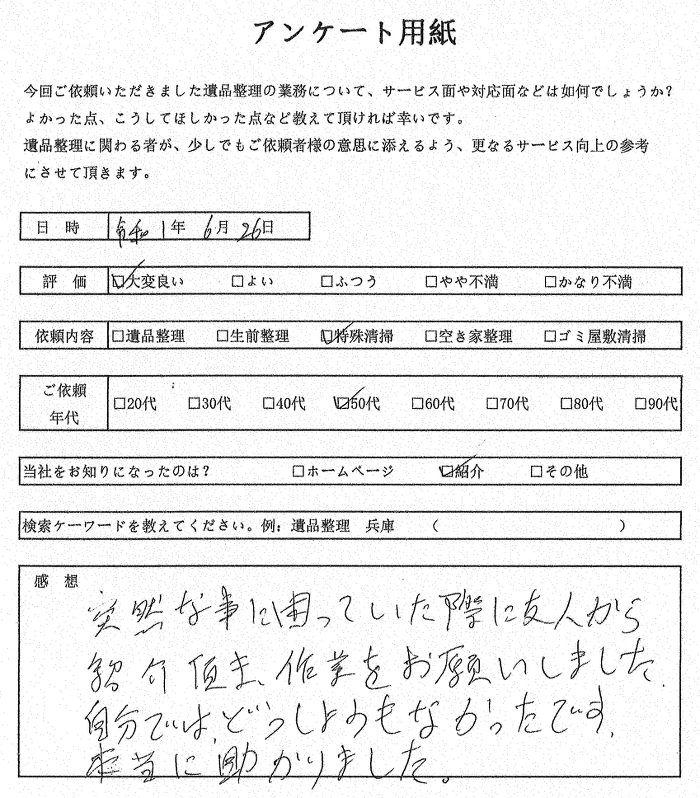 アンケート用紙
今回ご依頼いただきました遺品整理の業務について、サービス面や対応面などは如何でしょうか?
よかった点、こうしてほしかった点など教えて頂ければ幸いです。
遺品整理に関わる者が、少しでもご依頼者様の意思に添えるよう、更なるサービス向上の参考
にさせて頂きます。
日 時 令和 1年 6月 26日
評 価 ☑大変良い □よい □ふつう □やや不満 □かなり不満
依頼内容 □遺品整理 □生前整理 ☑特殊清掃 □空き家整理 □ゴミ屋敷清掃
ご依頼
年代 □20代 □30代 □40代 ☑50代 □60代 □70代 □80代 □90代
当社をお知りになったのは? □ホームページ ☑紹介 □その他
検索ケーワードを教えてください。例; 遺品整理 兵庫 ( )
感 想
突然な事に困っていた際に友人から
紹介頂き、作業をお願いしました。
自分では、どうしようもなかったです。
本当に助かりました。